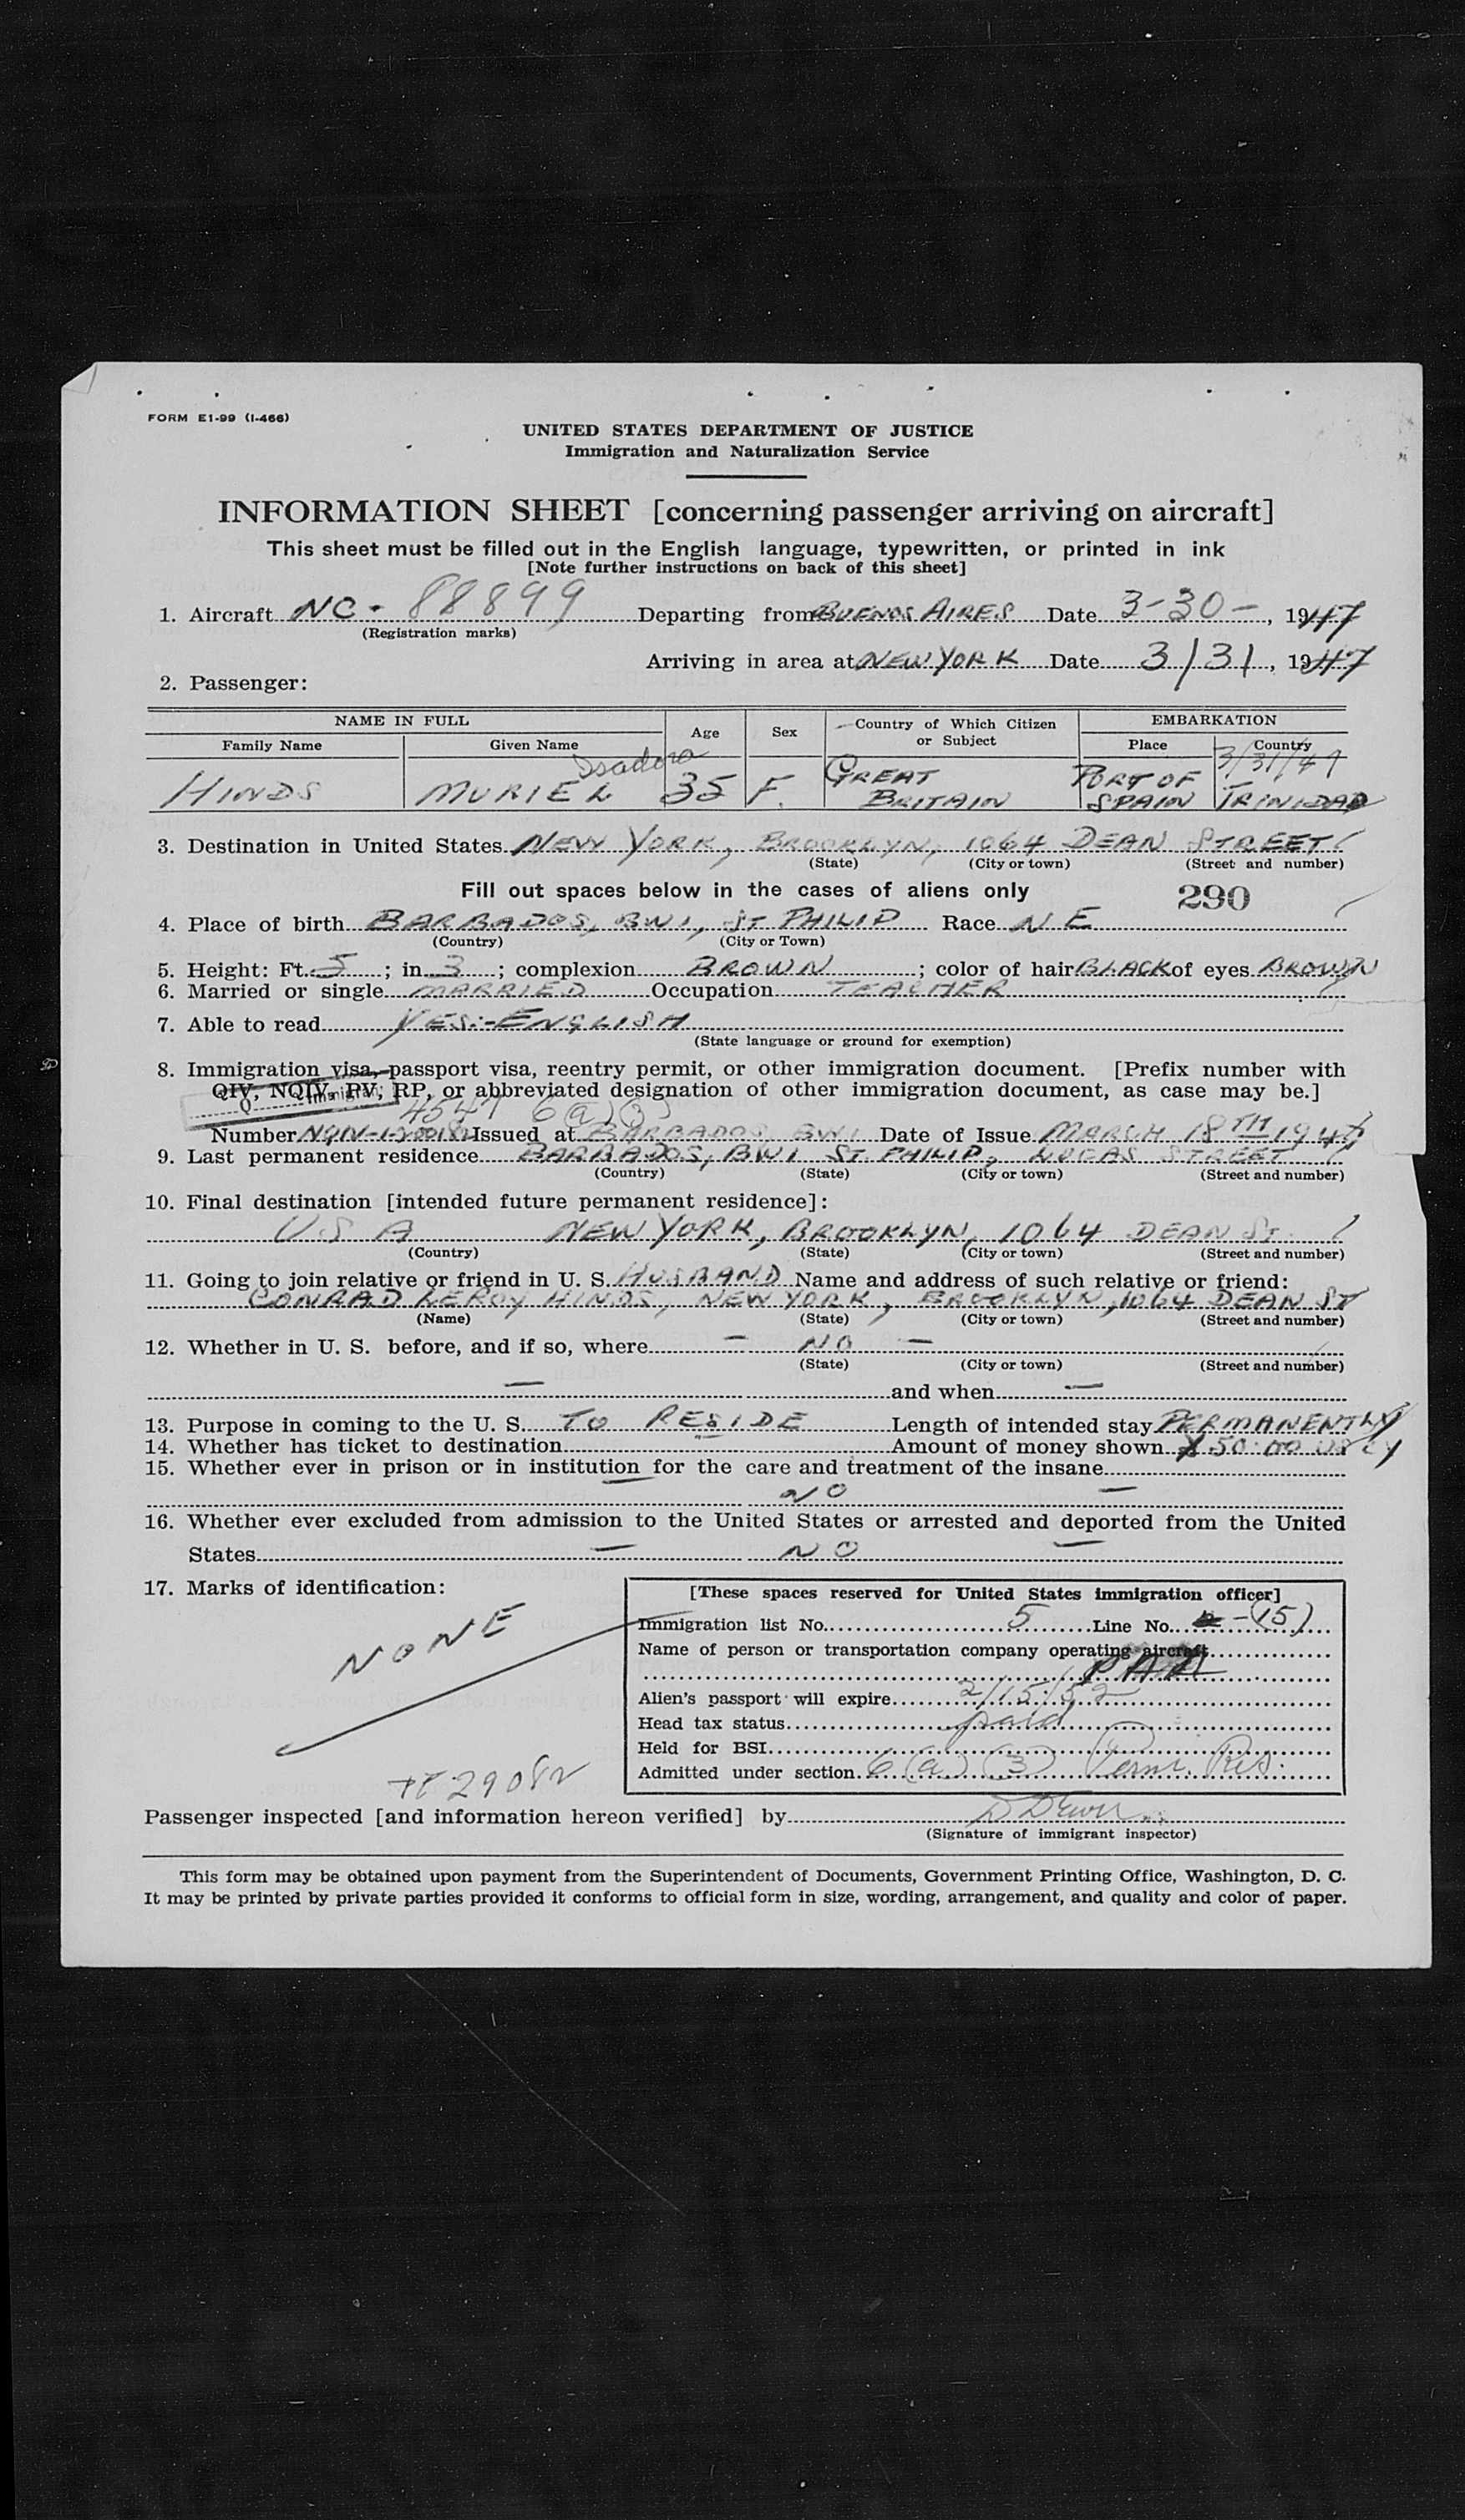 FORM E1-99 (I-466)
UNITED STATES DEPARTMENT OF JUSTICE
Immigration and Naturalization Service
INFORMATION SHEET [concerning passenger arriving on aircraft]
This sheet must be filled out in the English language, typewritten, or printed in ink
[Note further instructions on back of this sheet]
1. Aircraft NC - 88899 Departing from BUENOS AIRES Date 3-30-, 1947
(Registration marks)
Arriving in area at NEW YORK Date 3/31, 1947
2. Passenger:
NAME IN FULL Age Sex Country of Which Citizen or Subject EMBARKATION
Family Name Given Name Place Country
Isadora 3/31/47
HINDS MURIEL 35 F. GREAT BRITAIN PORT OF SPAIN TRINIDAD
3. Destination in United States NEW YORK, BROOKLYN, 1064 DEAN STREET
(State) (City or town) (Street and number)
Fill out spaces below in the cases of aliens only 290
4. Place of birth BARBADOS, BWI, ST PHILIP Race NE
(Country) (City or Town)
5. Height: Ft. 5; in 3; complexion BROWN; color of hair BLACK of eyes BROWN
6. Married or single MARRIED Occupation TEACHER
7. Able to read YES:-ENGLISH
(State language or ground for exemption)
8. Immigration visa, passport visa, reentry permit, or other immigration document. [Prefix number with
QIV, NQIV, PV, RP, or abbreviated designation of other immigration document, as case may be.]
6(a)(3)
Number Issued at BARBADOS, BWI Date of Issue MARCH 18TH 1947
9. Last permanent residence BARBADOS, BWI ST. PHILIP, LUCAS STREET
(Country) (State) (City or town) (Street and number)
10. Final destination [intended future permanent residence]:
U S A NEW YORK, BROOKLYN, 1064 DEAN ST.
(Country) (State) (City or town) (Street and number)
11. Going to join relative or friend in U. S. HUSBAND Name and address of such relative or friend:
CONRAD LEROY HINDS, NEW YORK, BROOKLYN, 1064 DEAN ST
(Name) (State) (City or town) (Street and number)
12. Whether in U. S. before, and if so, where — NO —
(State) (City or town) (Street and number)
— and when —
13. Purpose in coming to the U. S. TO RESIDE Length of intended stay PERMANENTLY
14. Whether has ticket to destination Amount of money shown $ 50.00 US CY
15. Whether ever in prison or in institution for the care and treatment of the insane
— NO —
16. Whether ever excluded from admission to the United States or arrested and deported from the United
States — NO —
17. Marks of identification:
NONE
[These spaces reserved for United States immigration officer]
Immigration list No. 5 Line No. -(15)
Name of person or transportation company operating aircraft
PAA
Alien's passport will expire 2/15/52
Head tax status paid
Held for BSI
Admitted under section 6(a)(3) Perm. Res.
29082
Passenger inspected [and information hereon verified] by
(Signature of immigrant inspector)
This form may be obtained upon payment from the Superintendent of Documents, Government Printing Office, Washington, D. C.
It may be printed by private parties provided it conforms to official form in size, wording, arrangement, and quality and color of paper.